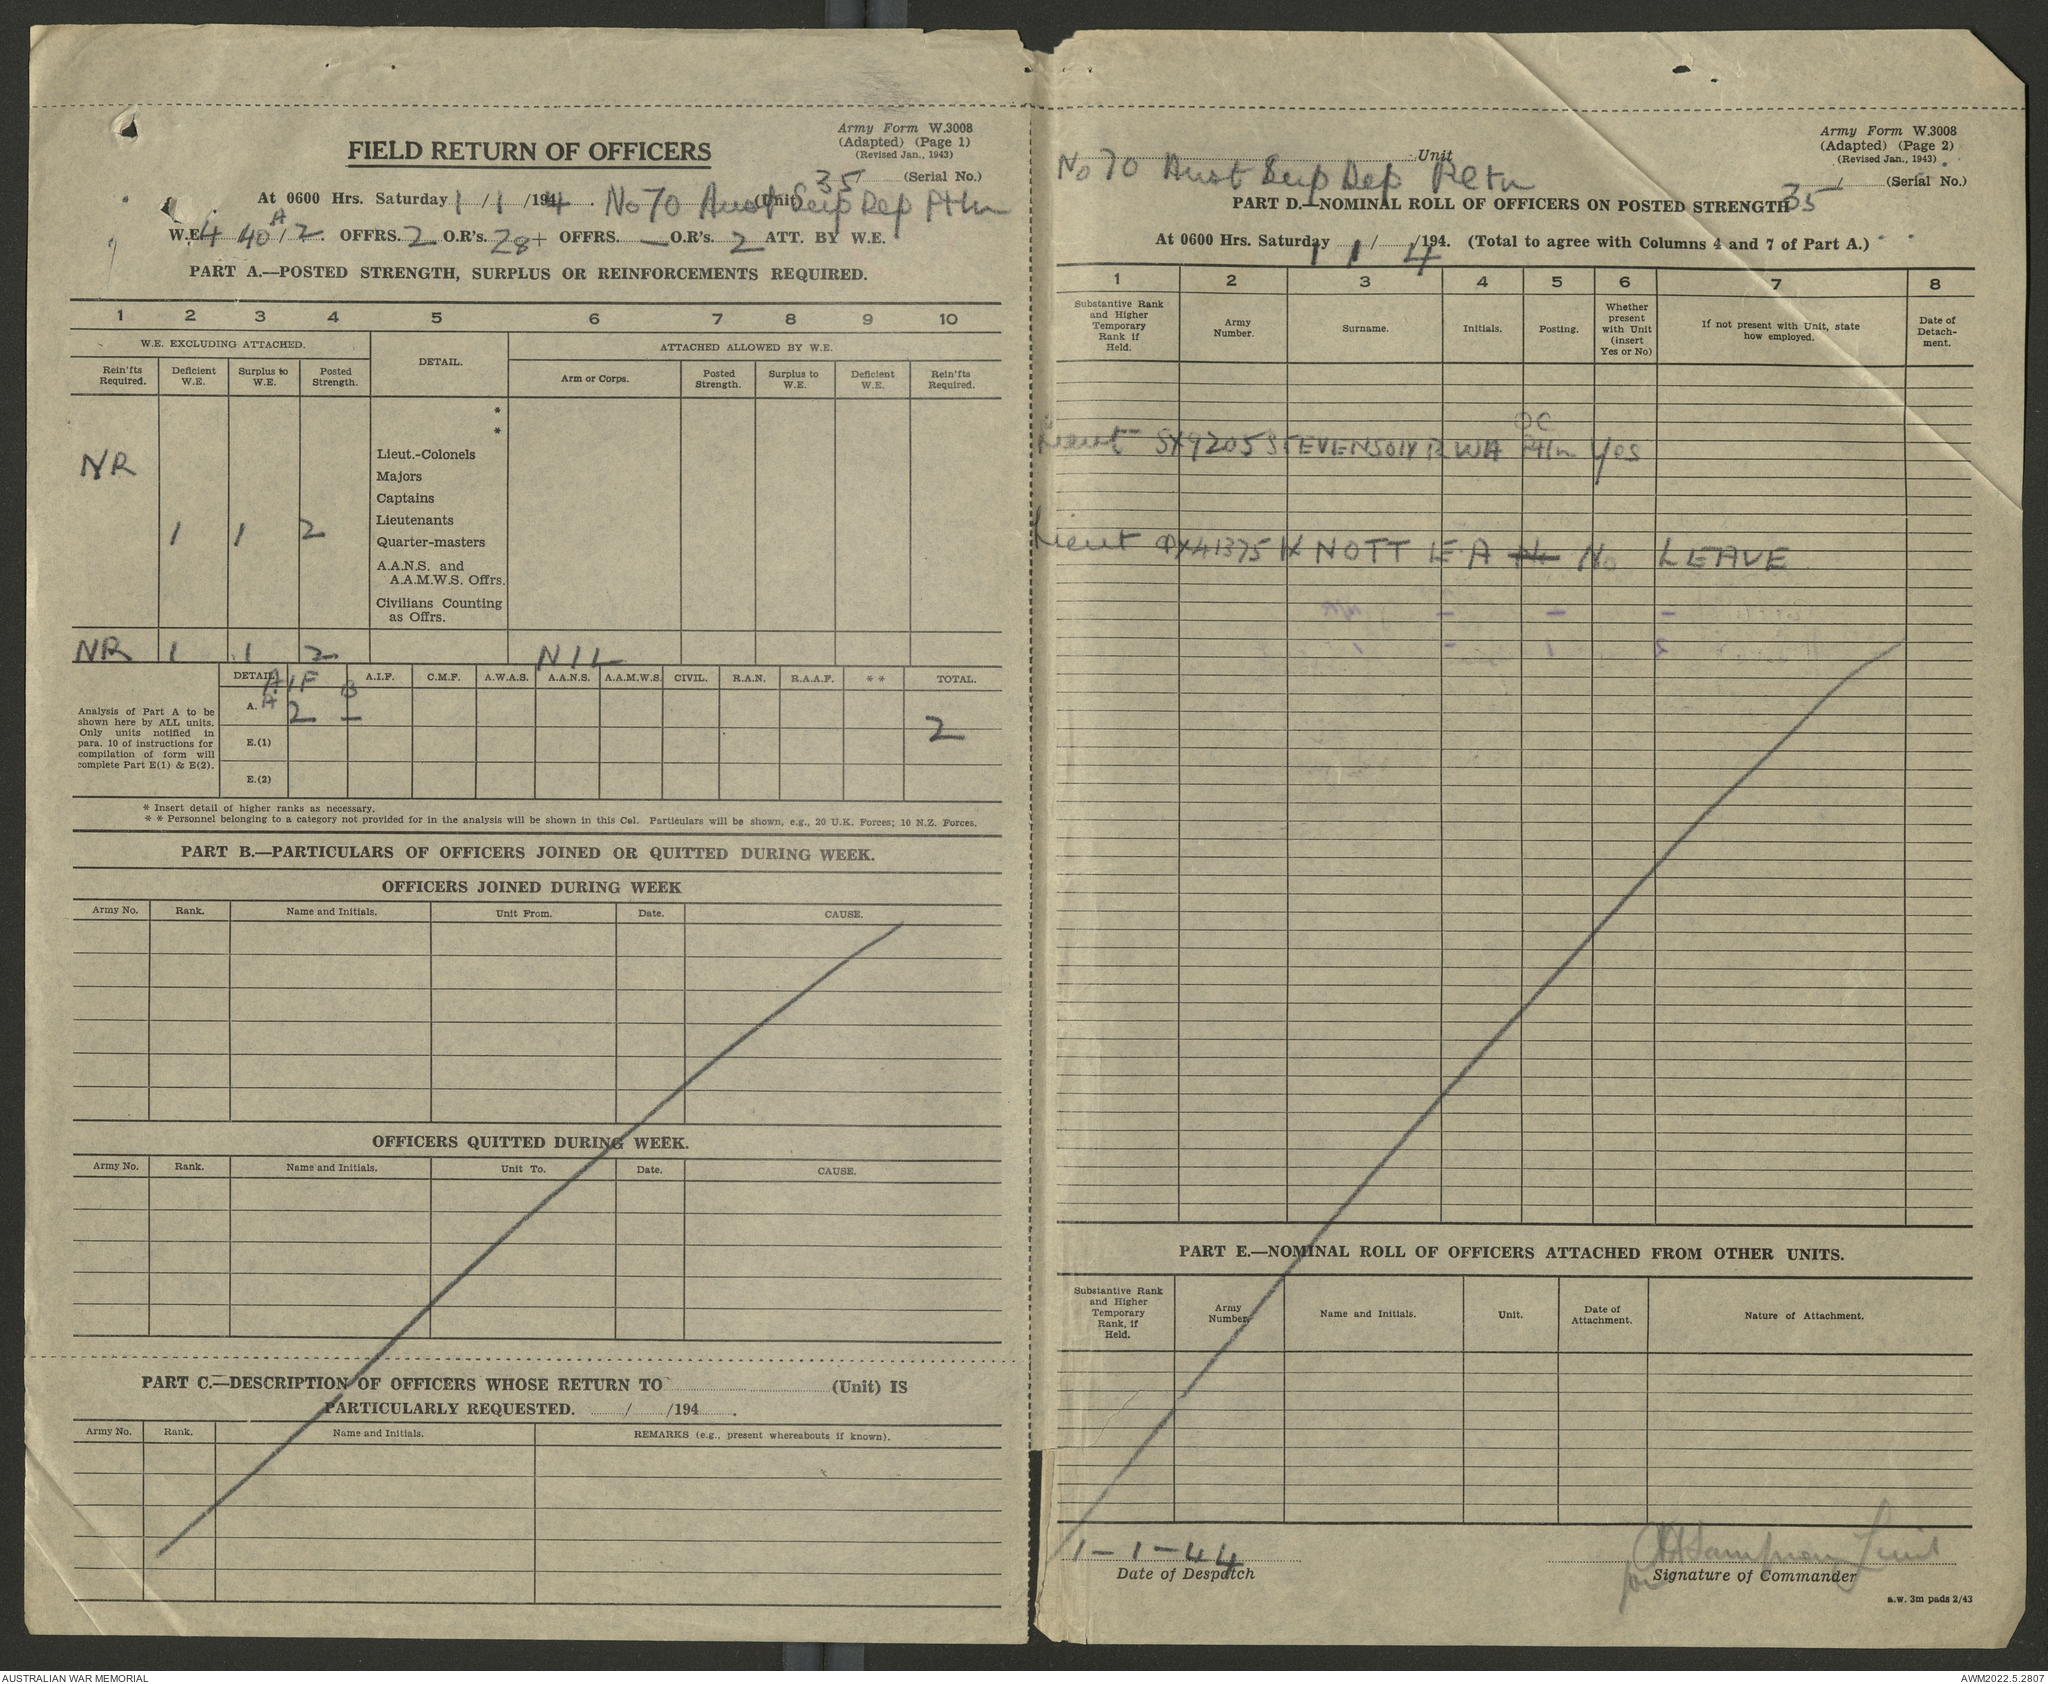 Army Form W.3008
(Adapted) (Page 1)
(Revised Jan., 1943)
FIELD RETURN OF OFFICERS
35 (Serial No.)
At 0600 Hrs. Saturday 1/1/1944. No 70 Aust Sup Dep Pltn (Unit)
W.E. 4 40A/2. OFFRS. 2 O.R's. 28 + OFFRS. – O.R's. 2 ATT. BY W.E.
PART A.—POSTED STRENGTH, SURPLUS OR REINFORCEMENTS REQUIRED.
1 2 3 4 5 6 7 8 9 10
W.E. EXCLUDING ATTACHED. DETAIL. ATTACHED ALLOWED BY W.E.
Rein'fts Required. Deficient W.E. Surplus to W.E. Posted Strength. Arm or Corps. Posted Strength. Surplus to W.E. Deficient W.E. Rein'fts Required.
*
*
NR Lieut.-Colonels
Majors
Captains
1 1 2 Lieutenants
Quarter-masters
A.A.N.S. and
A.A.M.W.S. Offrs.
Civilians Counting
as Offrs.
NR 1 1 2 NIL
DETAIL A.I.F. C.M.F. A.W.A.S. A.A.N.S. A.A.M.W.S. CIVIL. R.A.N. R.A.A.F. * * TOTAL.
AIF
A B
A. 2 – 2
E.(1)
E.(2)
Analysis of Part A to be
shown here by ALL units.
Only units notified in
para. 10 of instructions for
compilation of form will
complete Part E(1) & E(2).
* Insert detail of higher ranks as necessary.
* * Personnel belonging to a category not provided for in the analysis will be shown in this Col. Particulars will be shown, e.g., 20 U.K. Forces; 10 N.Z. Forces.
PART B.—PARTICULARS OF OFFICERS JOINED OR QUITTED DURING WEEK.
OFFICERS JOINED DURING WEEK
Army No. Rank. Name and Initials. Unit From. Date. CAUSE.
OFFICERS QUITTED DURING WEEK.
Army No. Rank. Name and Initials. Unit To. Date. CAUSE.
PART C.—DESCRIPTION OF OFFICERS WHOSE RETURN TO (Unit) IS
PARTICULARLY REQUESTED. / /194 .
Army No. Rank. Name and Initials. REMARKS (e.g., present whereabouts if known).
Army Form W.3008
(Adapted) (Page 2)
(Revised Jan., 1943)
No 70 Aust Sup Dep Pltn Unit
35 / (Serial No.)
PART D.—NOMINAL ROLL OF OFFICERS ON POSTED STRENGTH
At 0600 Hrs. Saturday 1/1/1944. (Total to agree with Columns 4 and 7 of Part A.)
1 2 3 4 5 6 7 8
Substantive Rank and Higher Temporary Rank if Held. Army Number. Surname. Initials. Posting. Whether present with Unit (insert Yes or No) If not present with Unit, state how employed. Date of Detachment.
OC
Lieut SX9205 STEVENSON R WA Pltn Yes
Lieut QX41375 KNOTT E A No LEAVE
PART E.—NOMINAL ROLL OF OFFICERS ATTACHED FROM OTHER UNITS.
Substantive Rank and Higher Temporary Rank, if Held. Army Number. Name and Initials. Unit. Date of Attachment. Nature of Attachment.
1-1-44
Date of Despatch
for Sampson Lieut
Signature of Commander
a.w. 3m pads 2/43
AUSTRALIAN WAR MEMORIAL
AWM2022.5.2807